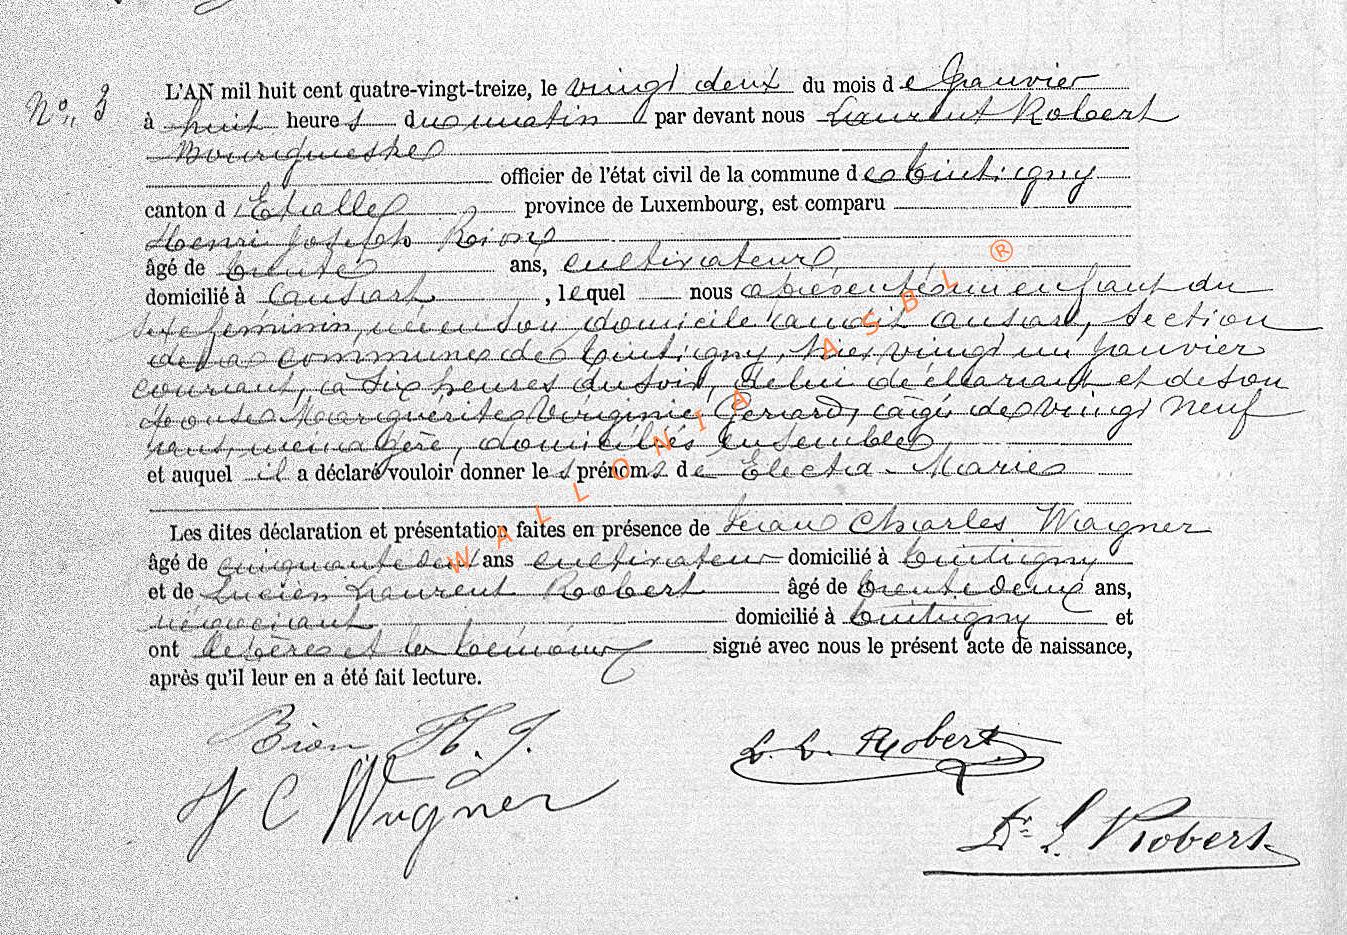 N° 3
L'AN mil huit cent quatre-vingt-treize, le vingt deux du mois de Janvier
à huit heures du matin par devant nous Laurent Robert
Bourgmestre
officier de l'état civil de la commune de Tintigny
canton d'Etalle province de Luxembourg, est comparu
Henri Joseph Bion
âgé de trente ans, cultivateur
domicilié à Ansart, lequel nous a présenté un enfant du
sexe féminin, né en son domicile audit Ansart, section
de la commune de Tintigny, hier vingt un Janvier
courant, à six heures du soir, de lui déclarant et de son
épouse Marguerite Virginie Gerard, âgée de vingt neuf
ans, ménagère, domiciliés ensemble
et auquel il a déclaré vouloir donner les prénoms de Electa Marie
Les dites déclaration et présentation faites en présence de Jean Charles Wagner
âgé de cinquante ans cultivateur domicilié à Tintigny
et de Lucien Laurent Robert âgé de trente deux ans,
négociant domicilié à Tintigny et
ont le père et les témoins signé avec nous le présent acte de naissance,
après qu'il leur en a été fait lecture.
Bion H. J.
L. L. Robert
J C Wagner
Dr L. Robert
WALLONIA ASBL ®